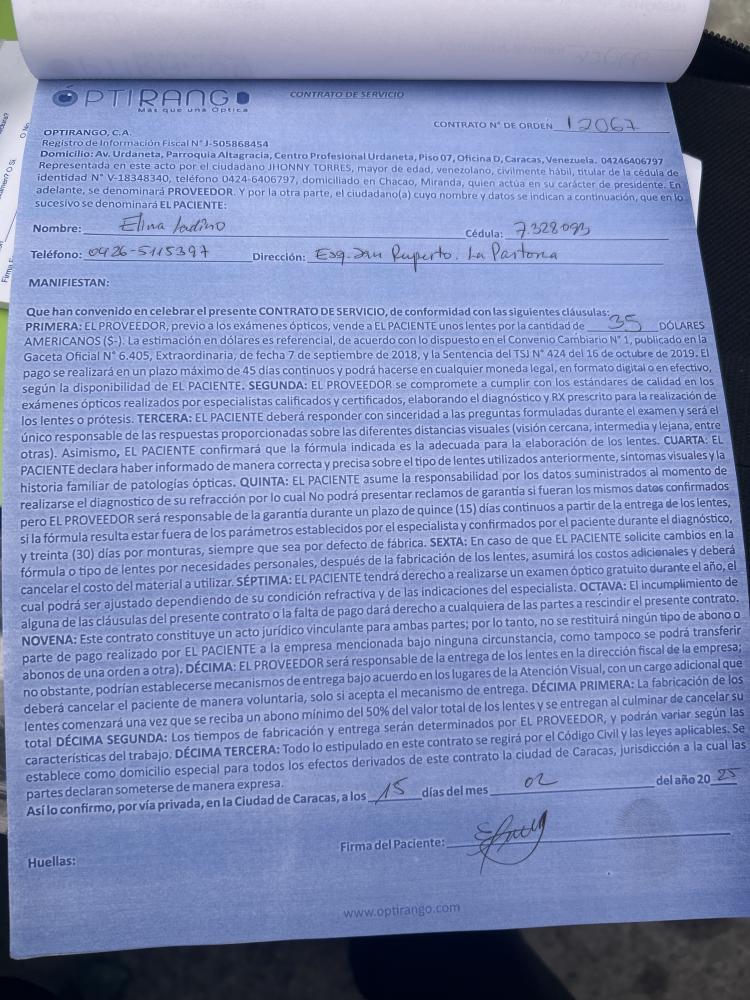 ÓPTIRANGO
Más que una Óptica
CONTRATO DE SERVICIO
CONTRATO N° DE ORDEN 12067
OPTIRANGO, C.A.
Registro de Información Fiscal N° J-505868454
Domicilio: Av. Urdaneta, Parroquia Altagracia, Centro Profesional Urdaneta, Piso 07, Oficina D, Caracas, Venezuela. 04246406797
Representada en este acto por el ciudadano JHONNY TORRES, mayor de edad, venezolano, civilmente hábil, titular de la cédula de
identidad N° V-18348340, teléfono 0424-6406797, domiciliado en Chacao, Miranda, quien actúa en su carácter de presidente. En
adelante, se denominará PROVEEDOR. Y por la otra parte, el ciudadano(a) cuyo nombre y datos se indican a continuación, que en lo
sucesivo se denominará EL PACIENTE:
Nombre: Elina Ladino Cédula: 7.328.093
Teléfono: 0426-5115397 Dirección: Esq. San Ruperto. La Pastora
MANIFIESTAN:
Que han convenido en celebrar el presente CONTRATO DE SERVICIO, de conformidad con las siguientes cláusulas:
PRIMERA: EL PROVEEDOR, previo a los exámenes ópticos, vende a EL PACIENTE unos lentes por la cantidad de 35 DÓLARES
AMERICANOS ($-). La estimación en dólares es referencial, de acuerdo con lo dispuesto en el Convenio Cambiario N° 1, publicado en la
Gaceta Oficial N° 6.405, Extraordinaria, de fecha 7 de septiembre de 2018, y la Sentencia del TSJ N° 424 del 16 de octubre de 2019. El
pago se realizará en un plazo máximo de 45 días continuos y podrá hacerse en cualquier moneda legal, en formato digital o en efectivo,
según la disponibilidad de EL PACIENTE. SEGUNDA: EL PROVEEDOR se compromete a cumplir con los estándares de calidad en los
exámenes ópticos realizados por especialistas calificados y certificados, elaborando el diagnóstico y RX prescrito para la realización de
los lentes o prótesis. TERCERA: EL PACIENTE deberá responder con sinceridad a las preguntas formuladas durante el examen y será el
único responsable de las respuestas proporcionadas sobre las diferentes distancias visuales (visión cercana, intermedia y lejana, entre
otras). Asimismo, EL PACIENTE confirmará que la fórmula indicada es la adecuada para la elaboración de los lentes. CUARTA: EL
PACIENTE declara haber informado de manera correcta y precisa sobre el tipo de lentes utilizados anteriormente, síntomas visuales y la
historia familiar de patologías ópticas. QUINTA: EL PACIENTE asume la responsabilidad por los datos suministrados al momento de
realizarse el diagnostico de su refracción por lo cual No podrá presentar reclamos de garantía si fueran los mismos datos confirmados
pero EL PROVEEDOR será responsable de la garantía durante un plazo de quince (15) días continuos a partir de la entrega de los lentes,
si la fórmula resulta estar fuera de los parámetros establecidos por el especialista y confirmados por el paciente durante el diagnóstico,
y treinta (30) días por monturas, siempre que sea por defecto de fábrica. SEXTA: En caso de que EL PACIENTE solicite cambios en la
fórmula o tipo de lentes por necesidades personales, después de la fabricación de los lentes, asumirá los costos adicionales y deberá
cancelar el costo del material a utilizar. SÉPTIMA: EL PACIENTE tendrá derecho a realizarse un examen óptico gratuito durante el año, el
cual podrá ser ajustado dependiendo de su condición refractiva y de las indicaciones del especialista. OCTAVA: El incumplimiento de
alguna de las cláusulas del presente contrato o la falta de pago dará derecho a cualquiera de las partes a rescindir el presente contrato.
NOVENA: Este contrato constituye un acto jurídico vinculante para ambas partes; por lo tanto, no se restituirá ningún tipo de abono o
parte de pago realizado por EL PACIENTE a la empresa mencionada bajo ninguna circunstancia, como tampoco se podrá transferir
abonos de una orden a otra). DÉCIMA: EL PROVEEDOR será responsable de la entrega de los lentes en la dirección fiscal de la empresa;
no obstante, podrían establecerse mecanismos de entrega bajo acuerdo en los lugares de la Atención Visual, con un cargo adicional que
deberá cancelar el paciente de manera voluntaria, solo si acepta el mecanismo de entrega. DÉCIMA PRIMERA: La fabricación de los
lentes comenzará una vez que se reciba un abono mínimo del 50% del valor total de los lentes y se entregan al culminar de cancelar su
total DÉCIMA SEGUNDA: Los tiempos de fabricación y entrega serán determinados por EL PROVEEDOR, y podrán variar según las
características del trabajo. DÉCIMA TERCERA: Todo lo estipulado en este contrato se regirá por el Código Civil y las leyes aplicables. Se
establece como domicilio especial para todos los efectos derivados de este contrato la ciudad de Caracas, jurisdicción a la cual las
partes declaran someterse de manera expresa.
Así lo confirmo, por vía privada, en la Ciudad de Caracas, a los 15 días del mes 02 del año 20 25
Firma del Paciente:
Huellas:
www.optirango.com